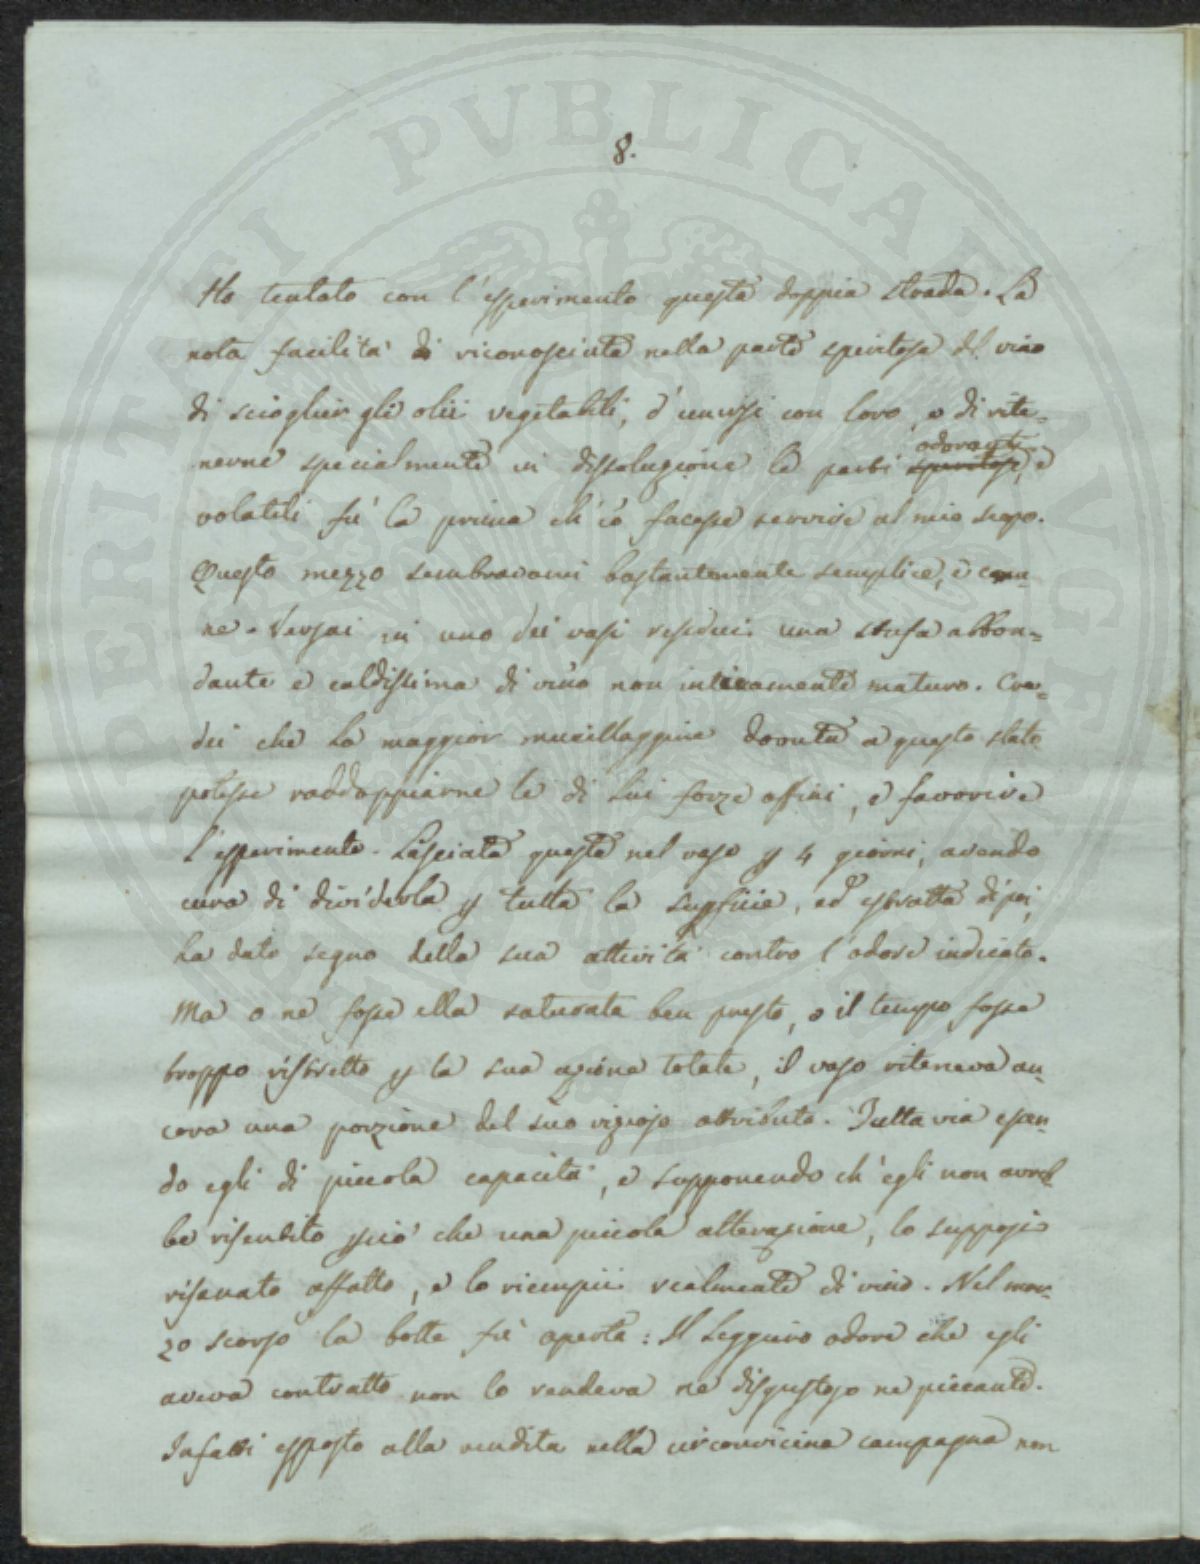 8.
Ho tentato con l'esperimento questa doppia strada. La
nota facilita' di riconosciuta nella parte spiritosa del vino
di scioglier gli olii vegetabili, d'unirsi con loro, o di rite=
nerne specialmente in dissoluzione le parti ~~spiritose~~, e
odoranti
volatili fu' la prima ch'io facesse servire al mio scopo.
Questo mezzo sembravami bastantemente semplice, e comu=
ne. Versai in uno dei vasi una stufa abbon=
dante e caldissima di vino non intieramente maturo. Cre=
dei che la maggior mucillaggine dovuta a questo stato
potesse raddoppiarne le di lui forze affini, e favorire
l'esperimento. Lasciata questa nel vaso p 4 giorni, avendo
cura di dividerla p tutta la supficie, ed estratta dipoi,
ha dato segno della sua attivita' contro l'odore indicato.
Ma o ne fosse ella saturata ben presto, o il tempo fosse
troppo ristretto p la sua azione totale, il vaso riteneva an=
cora una porzione del suo vizioso attributo. Tutta via essen=
do egli di piccola capacita', e supponendo ch'egli non avreb=
be risentito pciò che una piccola alterazione, lo supposi
risanato affatto, e lo riempii realmente di vino. Nel mar=
zo scorso la botte fu' aperta: Il leggiero odore che egli
aveva contratto non lo rendeva ne disgustoso ne piccante.
Infatti esposto alla vendita nella circonvicina campagna non
PERITATI PVBLICAE AVGE